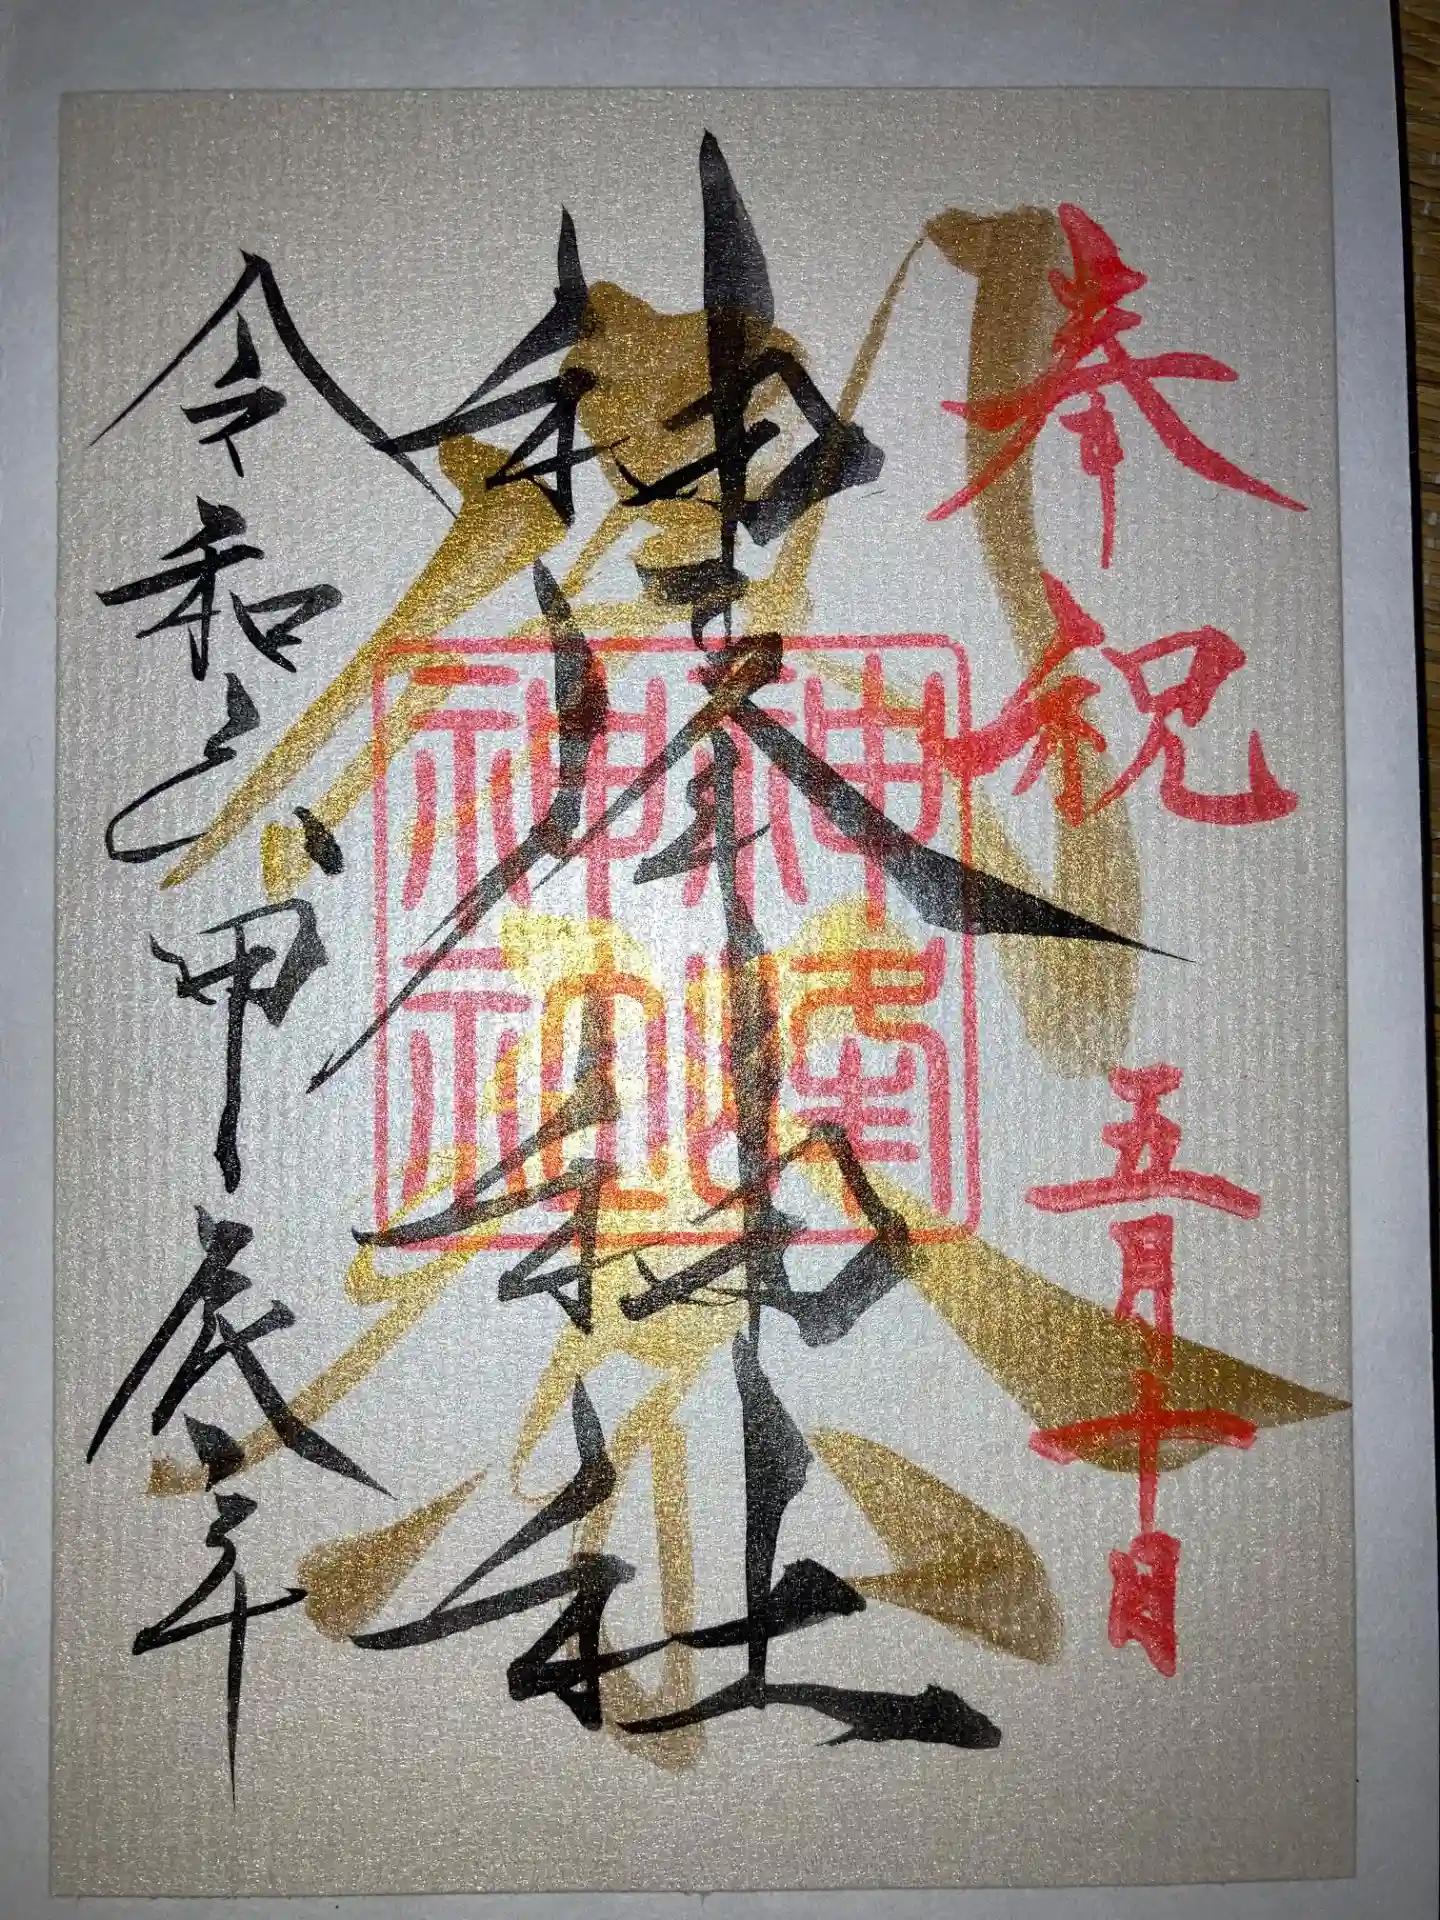 奉祝 五月十日
神 神社
神
神社
令和六甲辰年